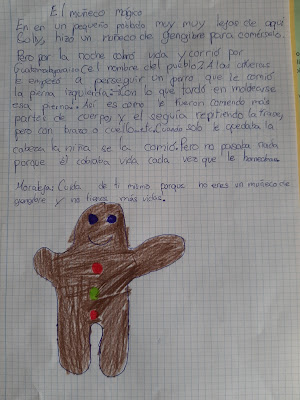 El muñeco mágico
En en un pequeño poblado muy muy lejos de aquí
hizo un muñeco de gengibre para comérselo.
Pero por la noche cobró vida y corrió por
(el nombre del pueblo). A las
le empezó a perseguir un perro que le comió
la pierna izquierda. lo que tardó en
esa pierna. Así es como le fueron comiendo más
partes de cuerpo y el seguía repitiendo la frase,
pero con brazo o cuello etc. Cuando solo le quedaba la
cabeza la niña se la comió. Pero no pasaba nada
porque él cobraba vida cada vez que le
Moraleja: Cuida de ti mismo porque no eres un muñeco de
gengibre y no tienes más vidas.